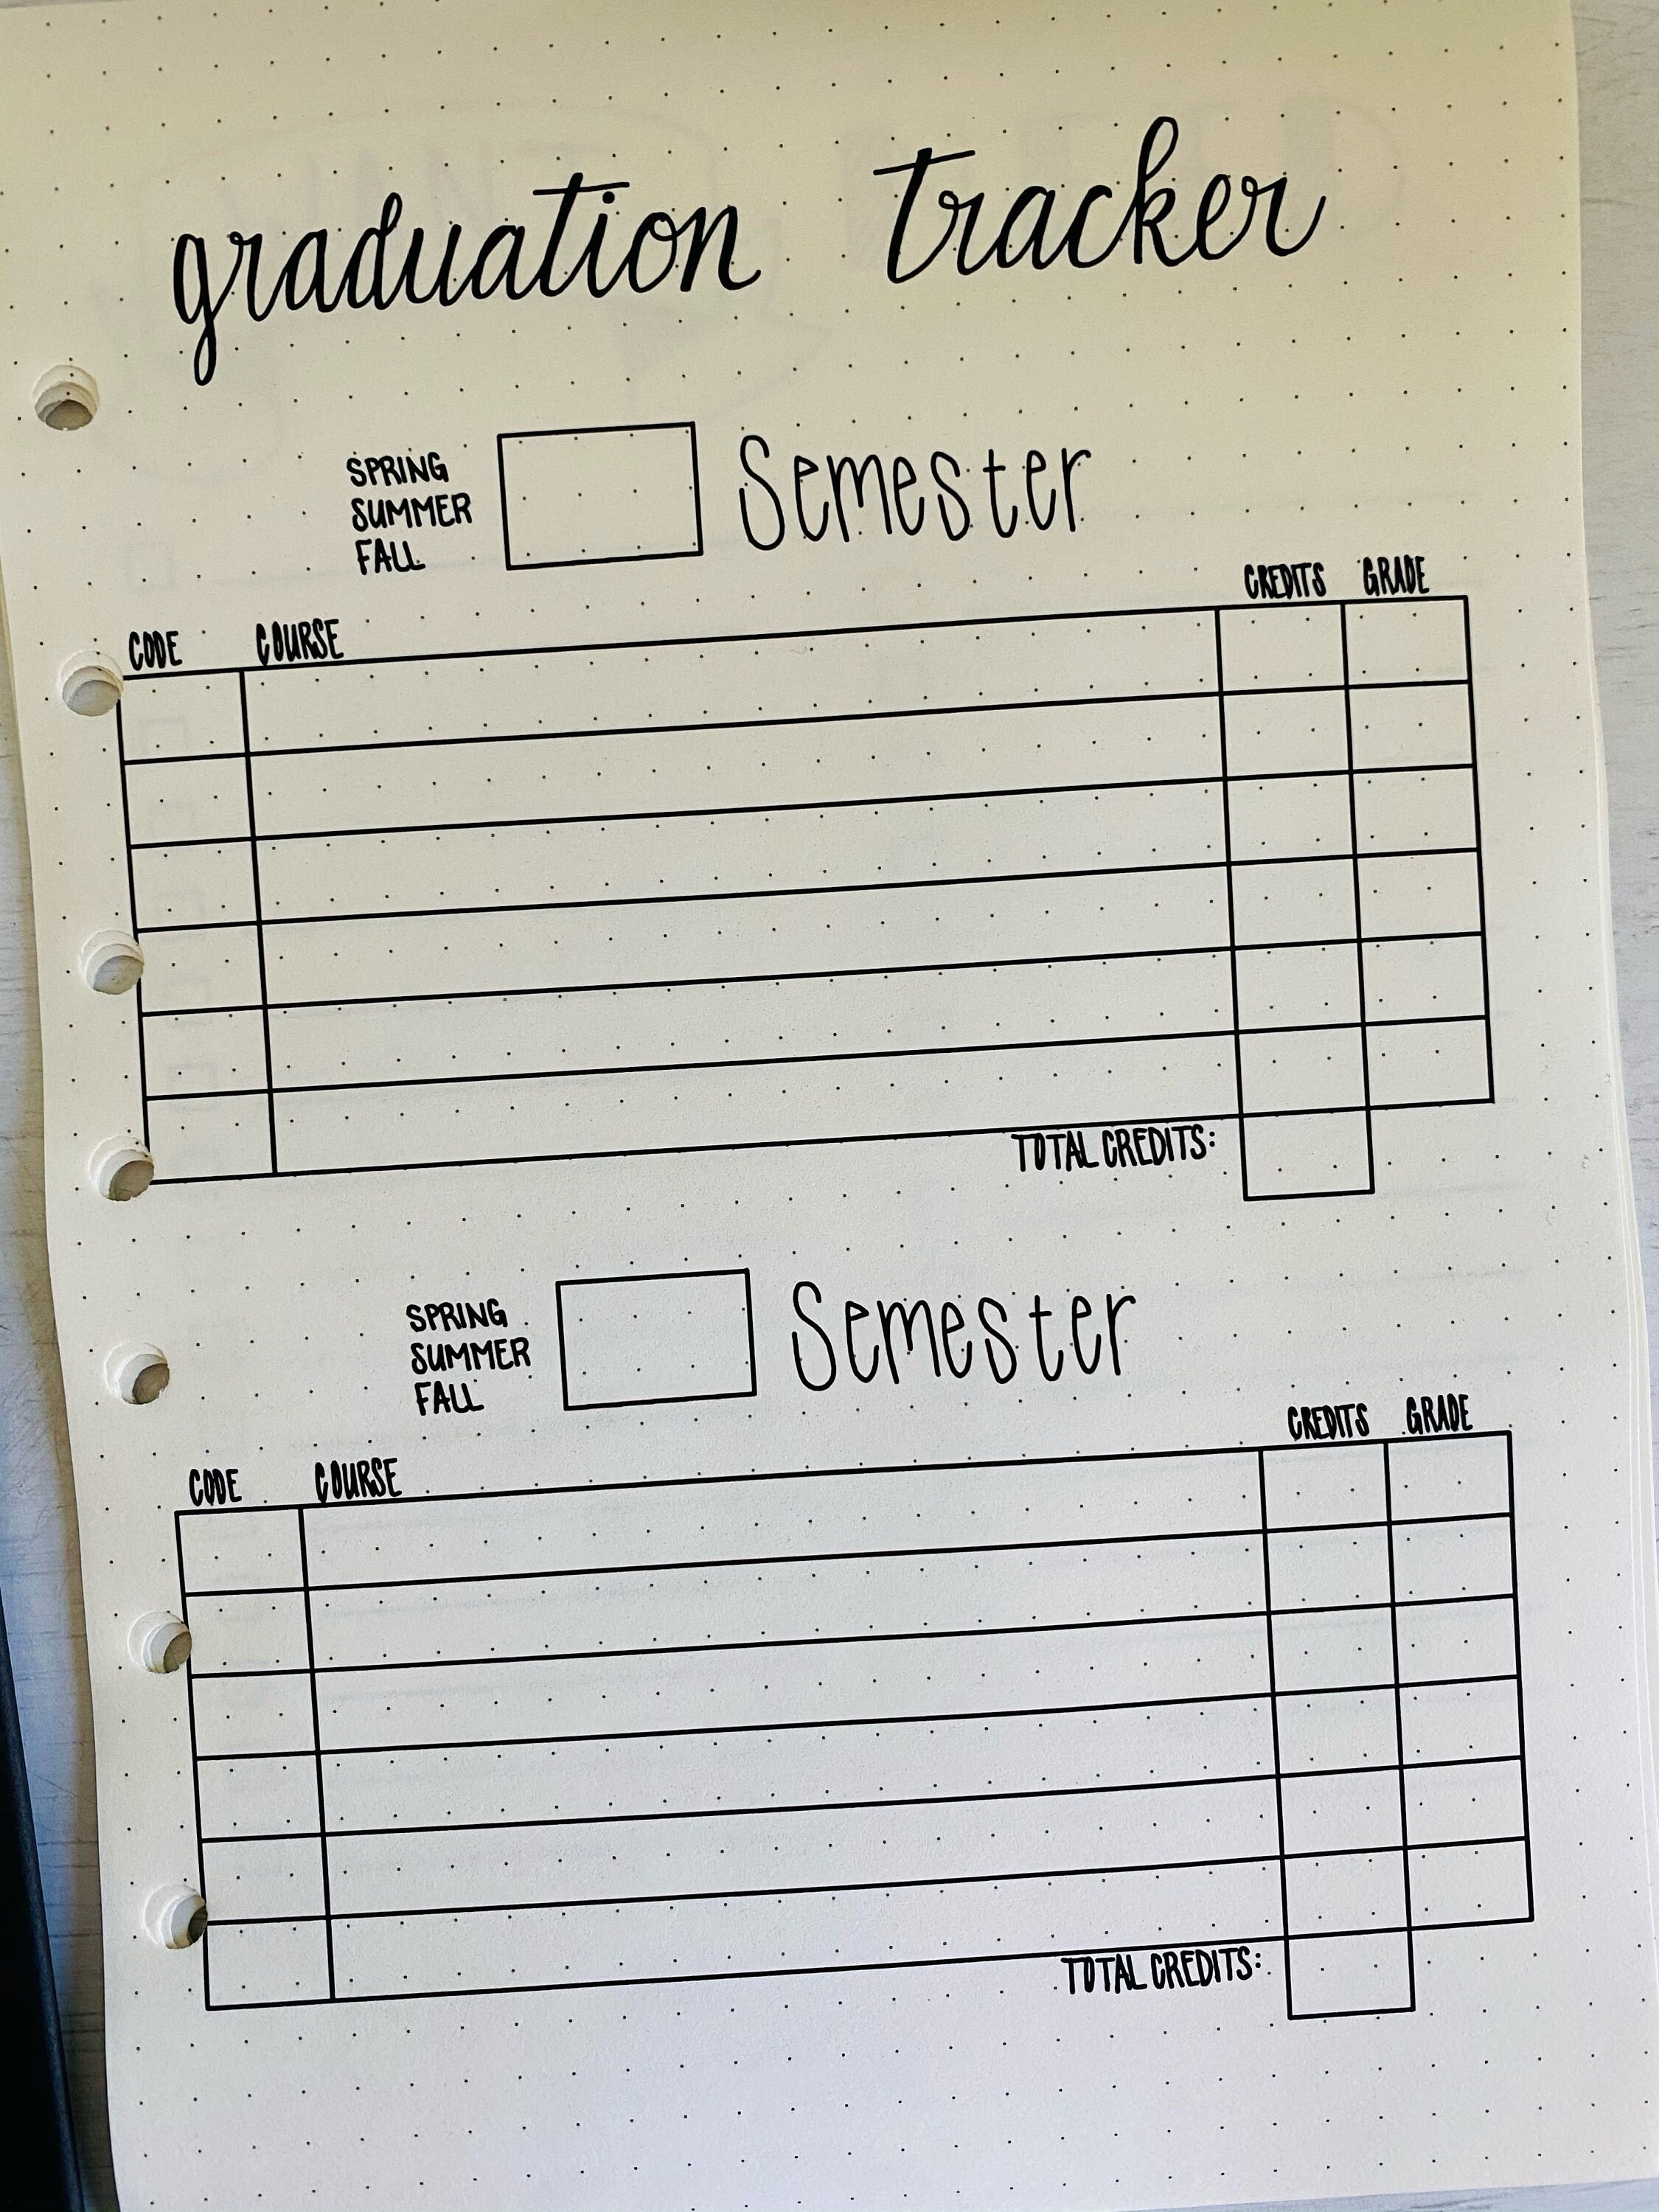 graduation tracker
SPRING
SUMMER
FALL
Semester
CODE COURSE CREDITS GRADE
TOTAL CREDITS:
SPRING
SUMMER
FALL
Semester
CODE COURSE CREDITS GRADE
TOTAL CREDITS: